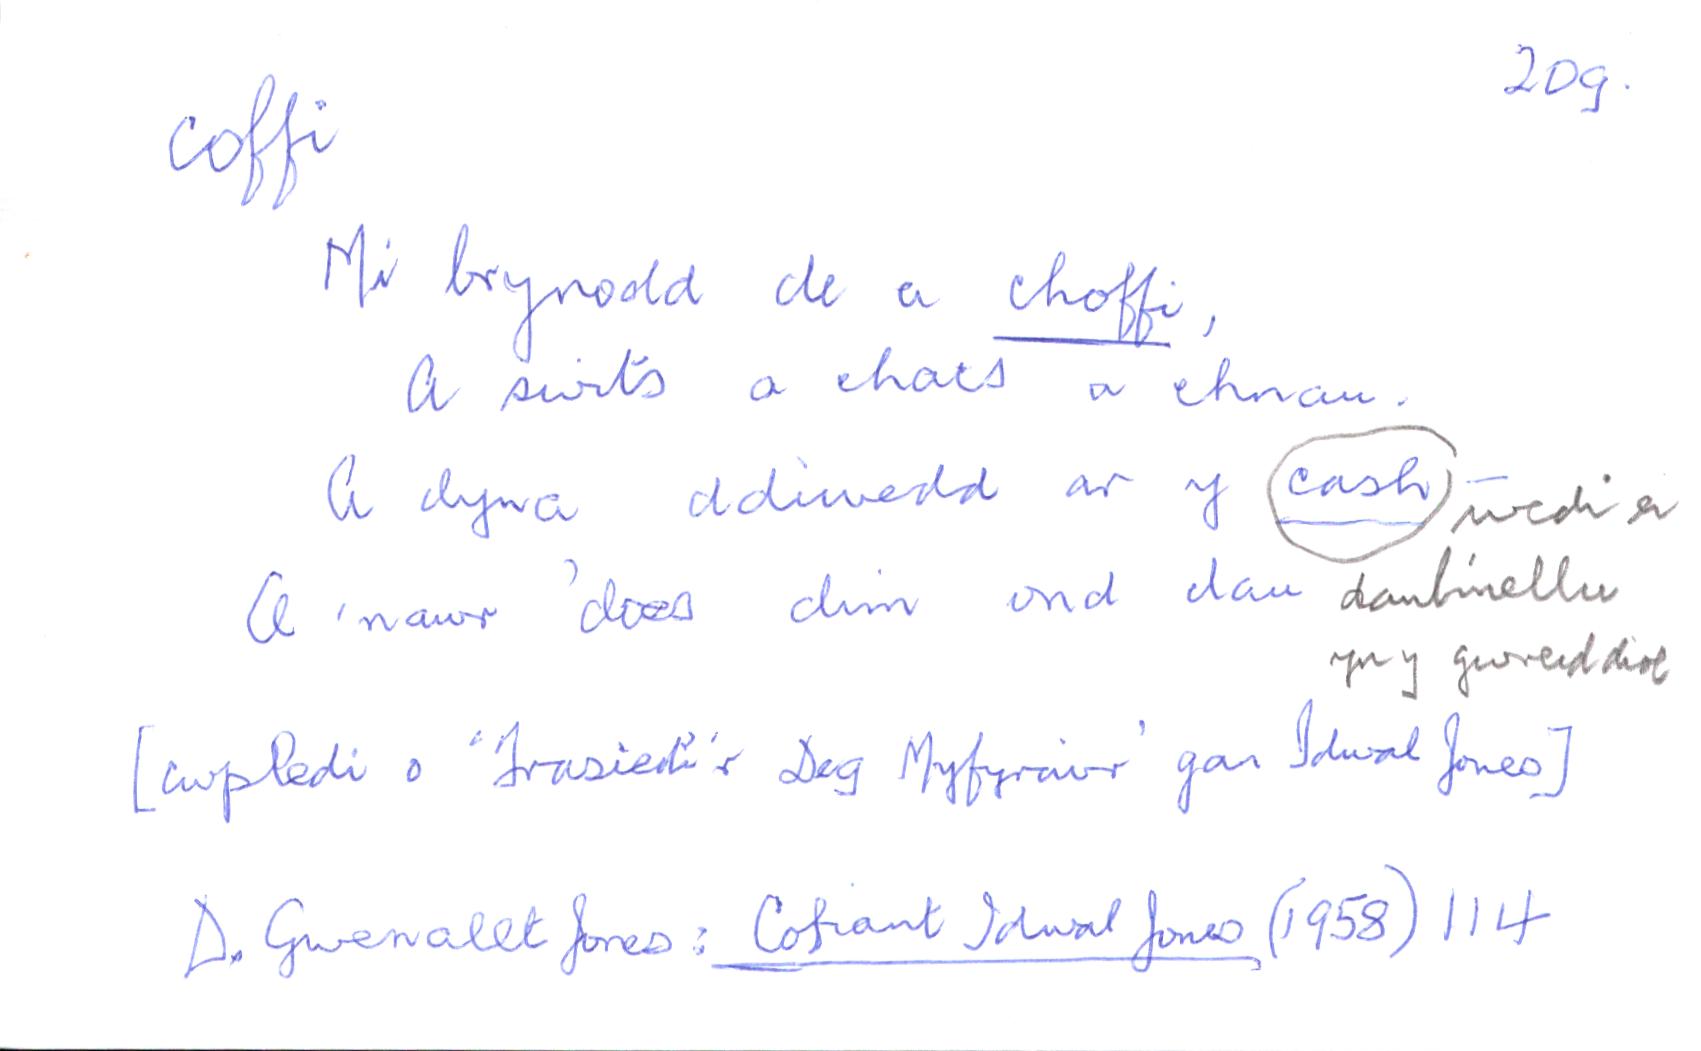 20g.
coffi
Mi brynodd de a choffi,
A swîts a chacs a chnau.
A dyna ddiwedd ar y cash – wedi ei
A 'nawr 'does dim ond dau danlinellu
yn y gwreiddiol
[cwpledi o 'Trasiedi'r Deg Myfyriwr' gan Idwal Jones]
D. Gwenallt Jones: Cofiant Idwal Jones (1958) 114